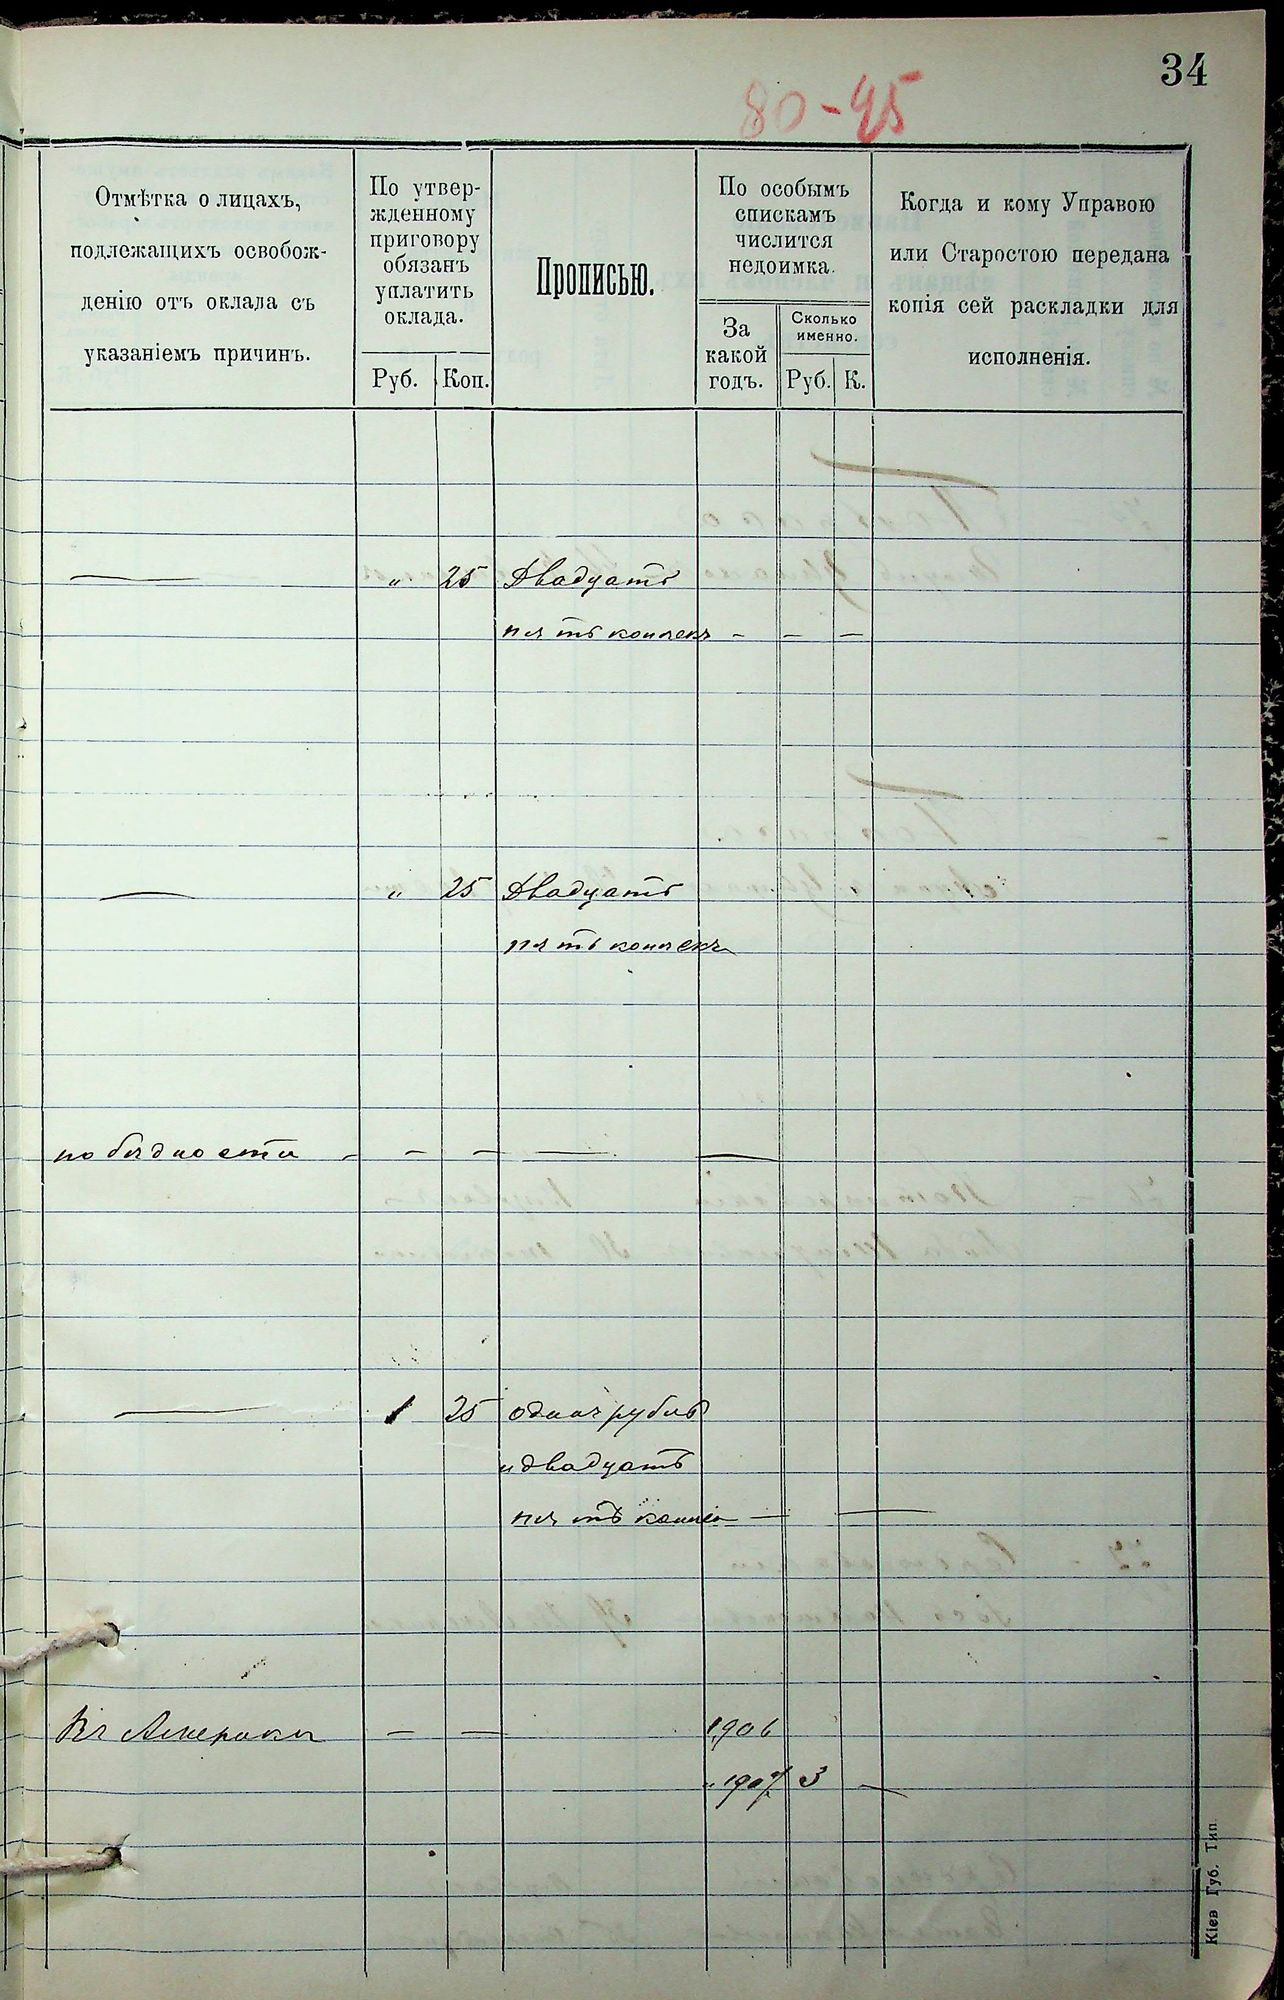 34
80-95
Отмѣтка о лицахъ,
подлежащихъ освобож-
денію отъ оклада съ
указаніемъ причинъ.
По утвер-
жденному
приговору
обязанъ
уплатить
оклада.
Руб. Коп.
Прописью.
По особымъ
спискамъ
числится
недоимка.
За
какой
годъ.
Сколько
именно.
Руб. К.
Когда и кому Управою
или Старостою передана
копія сей раскладки для
исполненія.
— „ 25 Двадцать
пять копѣекъ - - -
— „ 25 Двадцать
пять копѣекъ
по бѣдности - - - — —
— 1 25 одинъ рубль
и двадцать
пять копѣе — —
Въ Америкѣ — — 1906
„ 1907 3 —
Кіев Губ. Тип.